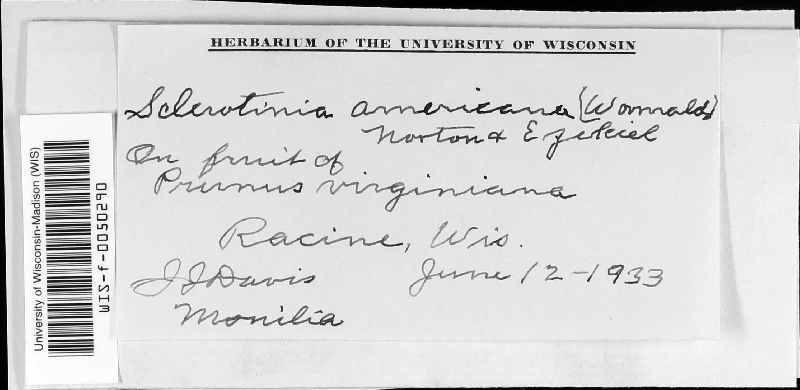 HERBARIUM OF THE UNIVERSITY OF WISCONSIN
Sclerotinia americana (Wormald)
Norton & Ezekiel
On fruit of
Prunus virginiana
Racine, Wis.
JJDavis June 12-1933
Monilia
University of Wisconsin-Madison (WIS)
WIS-f-0050290